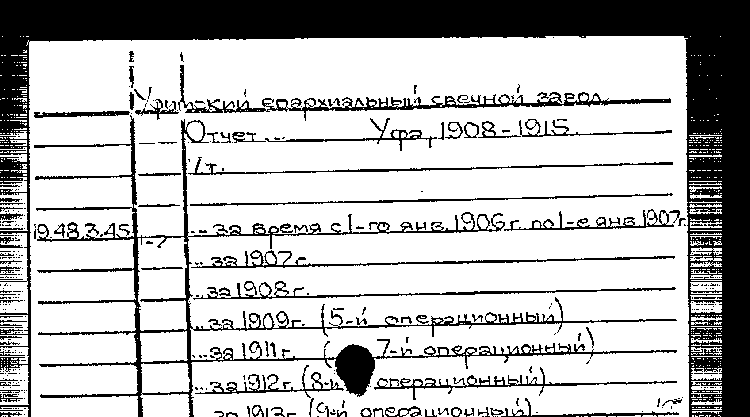 Уфимский епархиальный свечной завод.
Отчет... Уфа, 1908-1915.
1 т.
19.48.3.45 1-7 ... за время с 1-го янв. 1906 г. по 1-е янв 1907г.
... за 1907 г.
... за 1908 г.
... за 1909 г. (5-й операционный)
... за 1911 г. ( 7-й операционный)
... за 1912 г. (8-й операционный)
... за 1913 г. (9-й операционный).